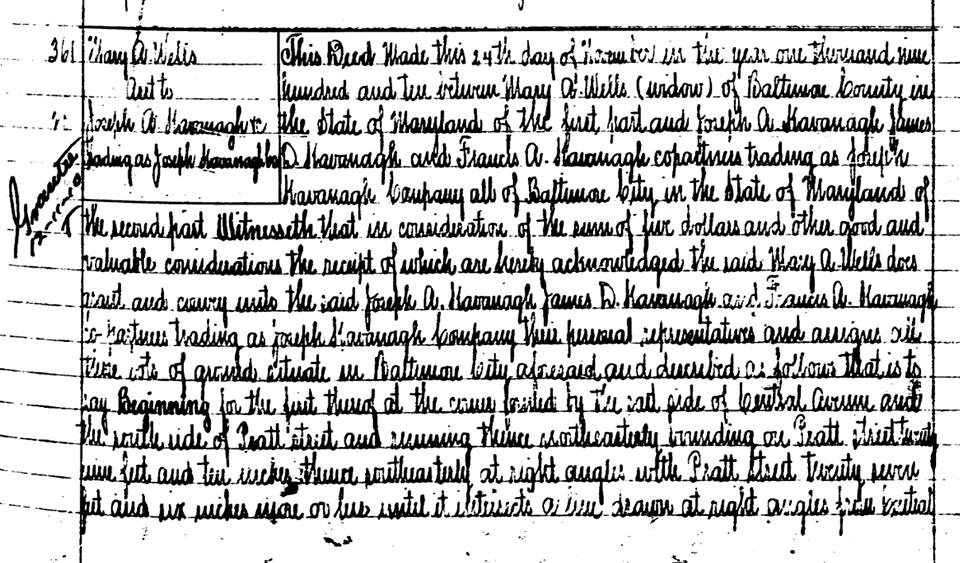 361
Mary A. Wells
This Deed Made this 24th day of November in the year one thousand nine
hundred and ten between Mary A. Wells (widow) of Baltimore County in
Joseph A. Kavanagh &c
the State of Maryland of the first part and Joseph A. Kavanagh James
trading as Joseph Kavanagh Co
D. Kavanagh and Francis A. Kavanagh copartners trading as Joseph
Kavanagh Company all of Baltimore City in the State of Maryland of
the second part Witnesseth that in consideration of the sum of five dollars and other good and
valuable considerations the receipt of which are hereby acknowledged the said Mary A. Wells does
grant and convey unto the said Joseph A. Kavanagh James D. Kavanagh and Francis A. Kavanagh
co-partners trading as Joseph Kavanagh Company their personal representatives and assigns all
those lots of ground situate in Baltimore City aforesaid and described as follows that is to
say Beginning for the first thereof at the corner formed by the east side of Central Avenue and
the south side of Pratt Street and running thence northeasterly bounding on Pratt Street twenty
nine feet and ten inches thence southeasterly at right angles with Pratt Street twenty seven
feet and six inches more or less until it intersects a line drawn at right angles from Central